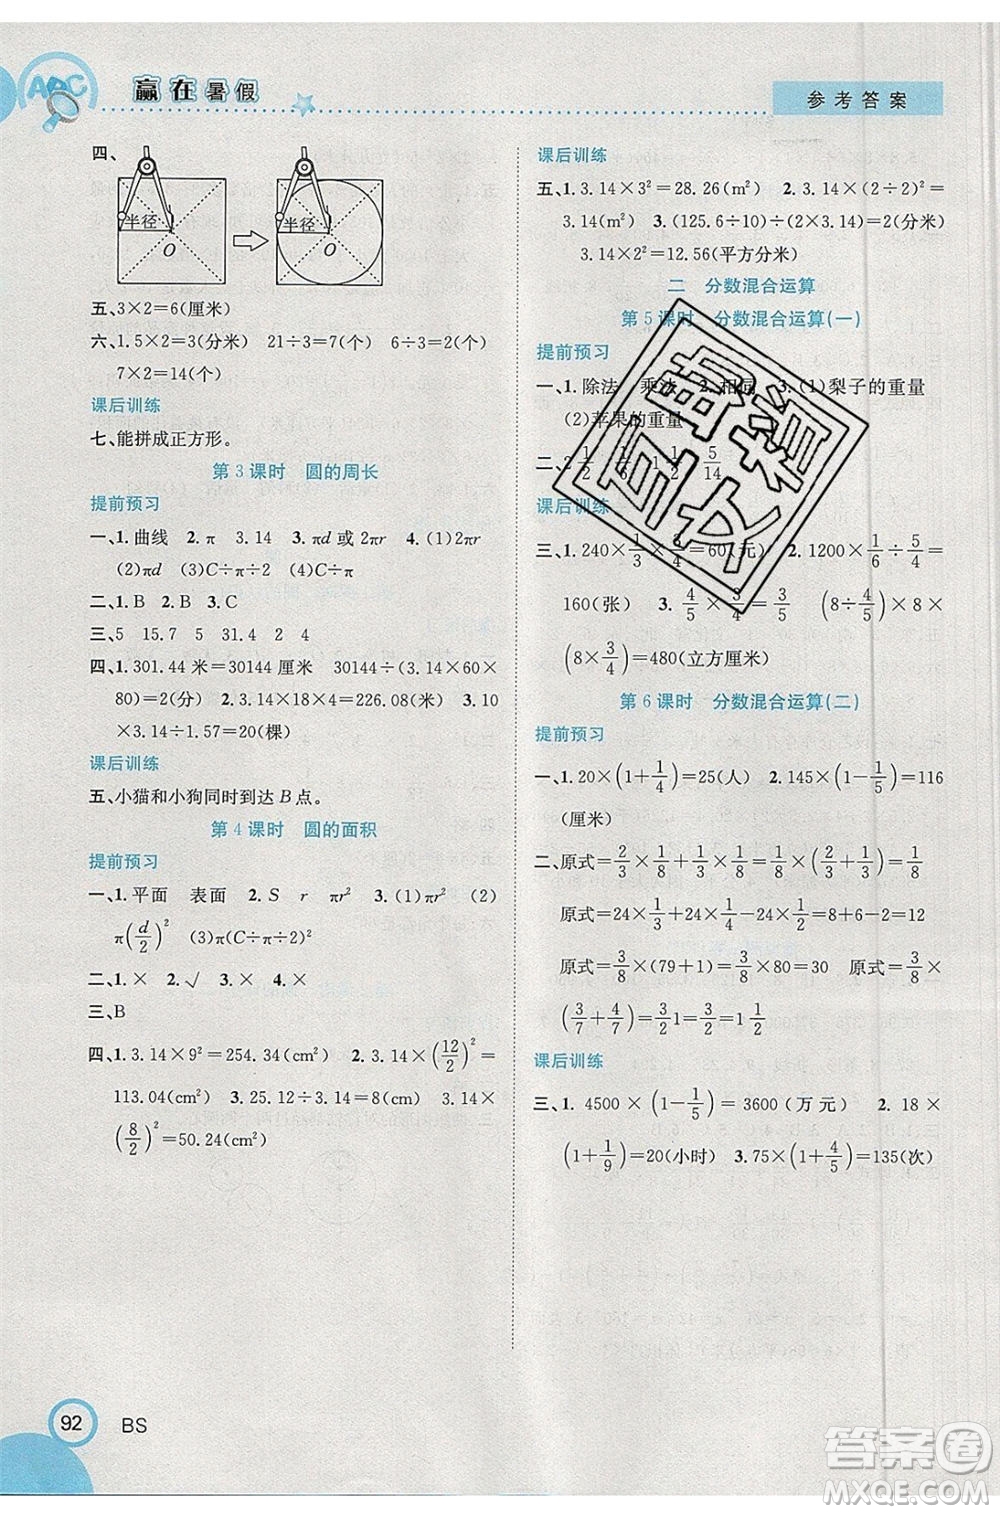 ABC
赢在暑假
参考答案
四、
半径
O
半径
O
五、3×2=6(厘米)
六、1.5×2=3(分米) 21÷3=7(个) 6÷3=2(个)
7×2=14(个)
课后训练
七、能拼成正方形。
第3课时 圆的周长
提前预习
一、1.曲线 2.π 3.14 3.πd或2πr 4.(1)2πr
(2)πd (3)C÷π
二、1.B 2.B 3.C
三、5 15.7 5 31.4 2 4
四、1.301.44米=30144厘米 30144÷(3.14×60×
80)=2(分) 2.3.14×18×4=226.08(米) 3.10
×3.14÷1.57=20(棵)
课后训练
五、小猫和小狗同时到达B点。
第4课时 圆的面积
提前预习
一、1.平面 表面 2.S r πr² 3.(1)πr² (2)
π(d/2)² (3)π(C÷π÷2)²
二、1.× 2.√ 3.× 4.×
三、B
四、1.3.14×9²=254.34(cm²) 2.3.14×(12/2)²=
113.04(cm²) 3.25.12÷3.14=8(cm) 3.14×
(8/2)²=50.24(cm²)
课后训练
五、1.3.14×3²=28.26(m²) 2.3.14×(2÷2)²=
3.14(m²) 3.(125.6÷10)÷(2×3.14)=2(分米)
3.14×2²=12.56(平方分米)
二 分数混合运算
第5课时 分数混合运算(一)
提前预习
一、1.除法 乘法 2.相同 3.(1)梨子的重量
(2)苹果的重量
二、2 1/2 1/6 1 1/2 5/14
课后训练
三、1.240×1/3×3/4=60(元) 2.1200×1/6÷5/4=
160(张) 3.4/5×3/4×3/4= (8÷4/5)×8×
(8×3/4)=480(立方厘米)
第6课时 分数混合运算(二)
提前预习
一、1.20×(1+1/4)=25(人) 2.145×(1-1/5)=116
(厘米)
二、原式=2/3×1/6+1/3×1/6=(2/3+1/3)×1/8=1/8
原式=24×3/4-24×1/8=18-6=12 原式=24×3/4+24×1/6-24×1/2=18+4-8=12
原式=3/8×(79+1)=3/8×80=30 原式=3/8×
(3/7+4/7)=3/2×1=3/2
课后训练
三、1.4500×(1-1/5)=3600(万元) 2.18×
(1+1/9)=20(小时) 3.75×(1+4/5)=135(次)
92
BS
答案圈
MXQE.COM